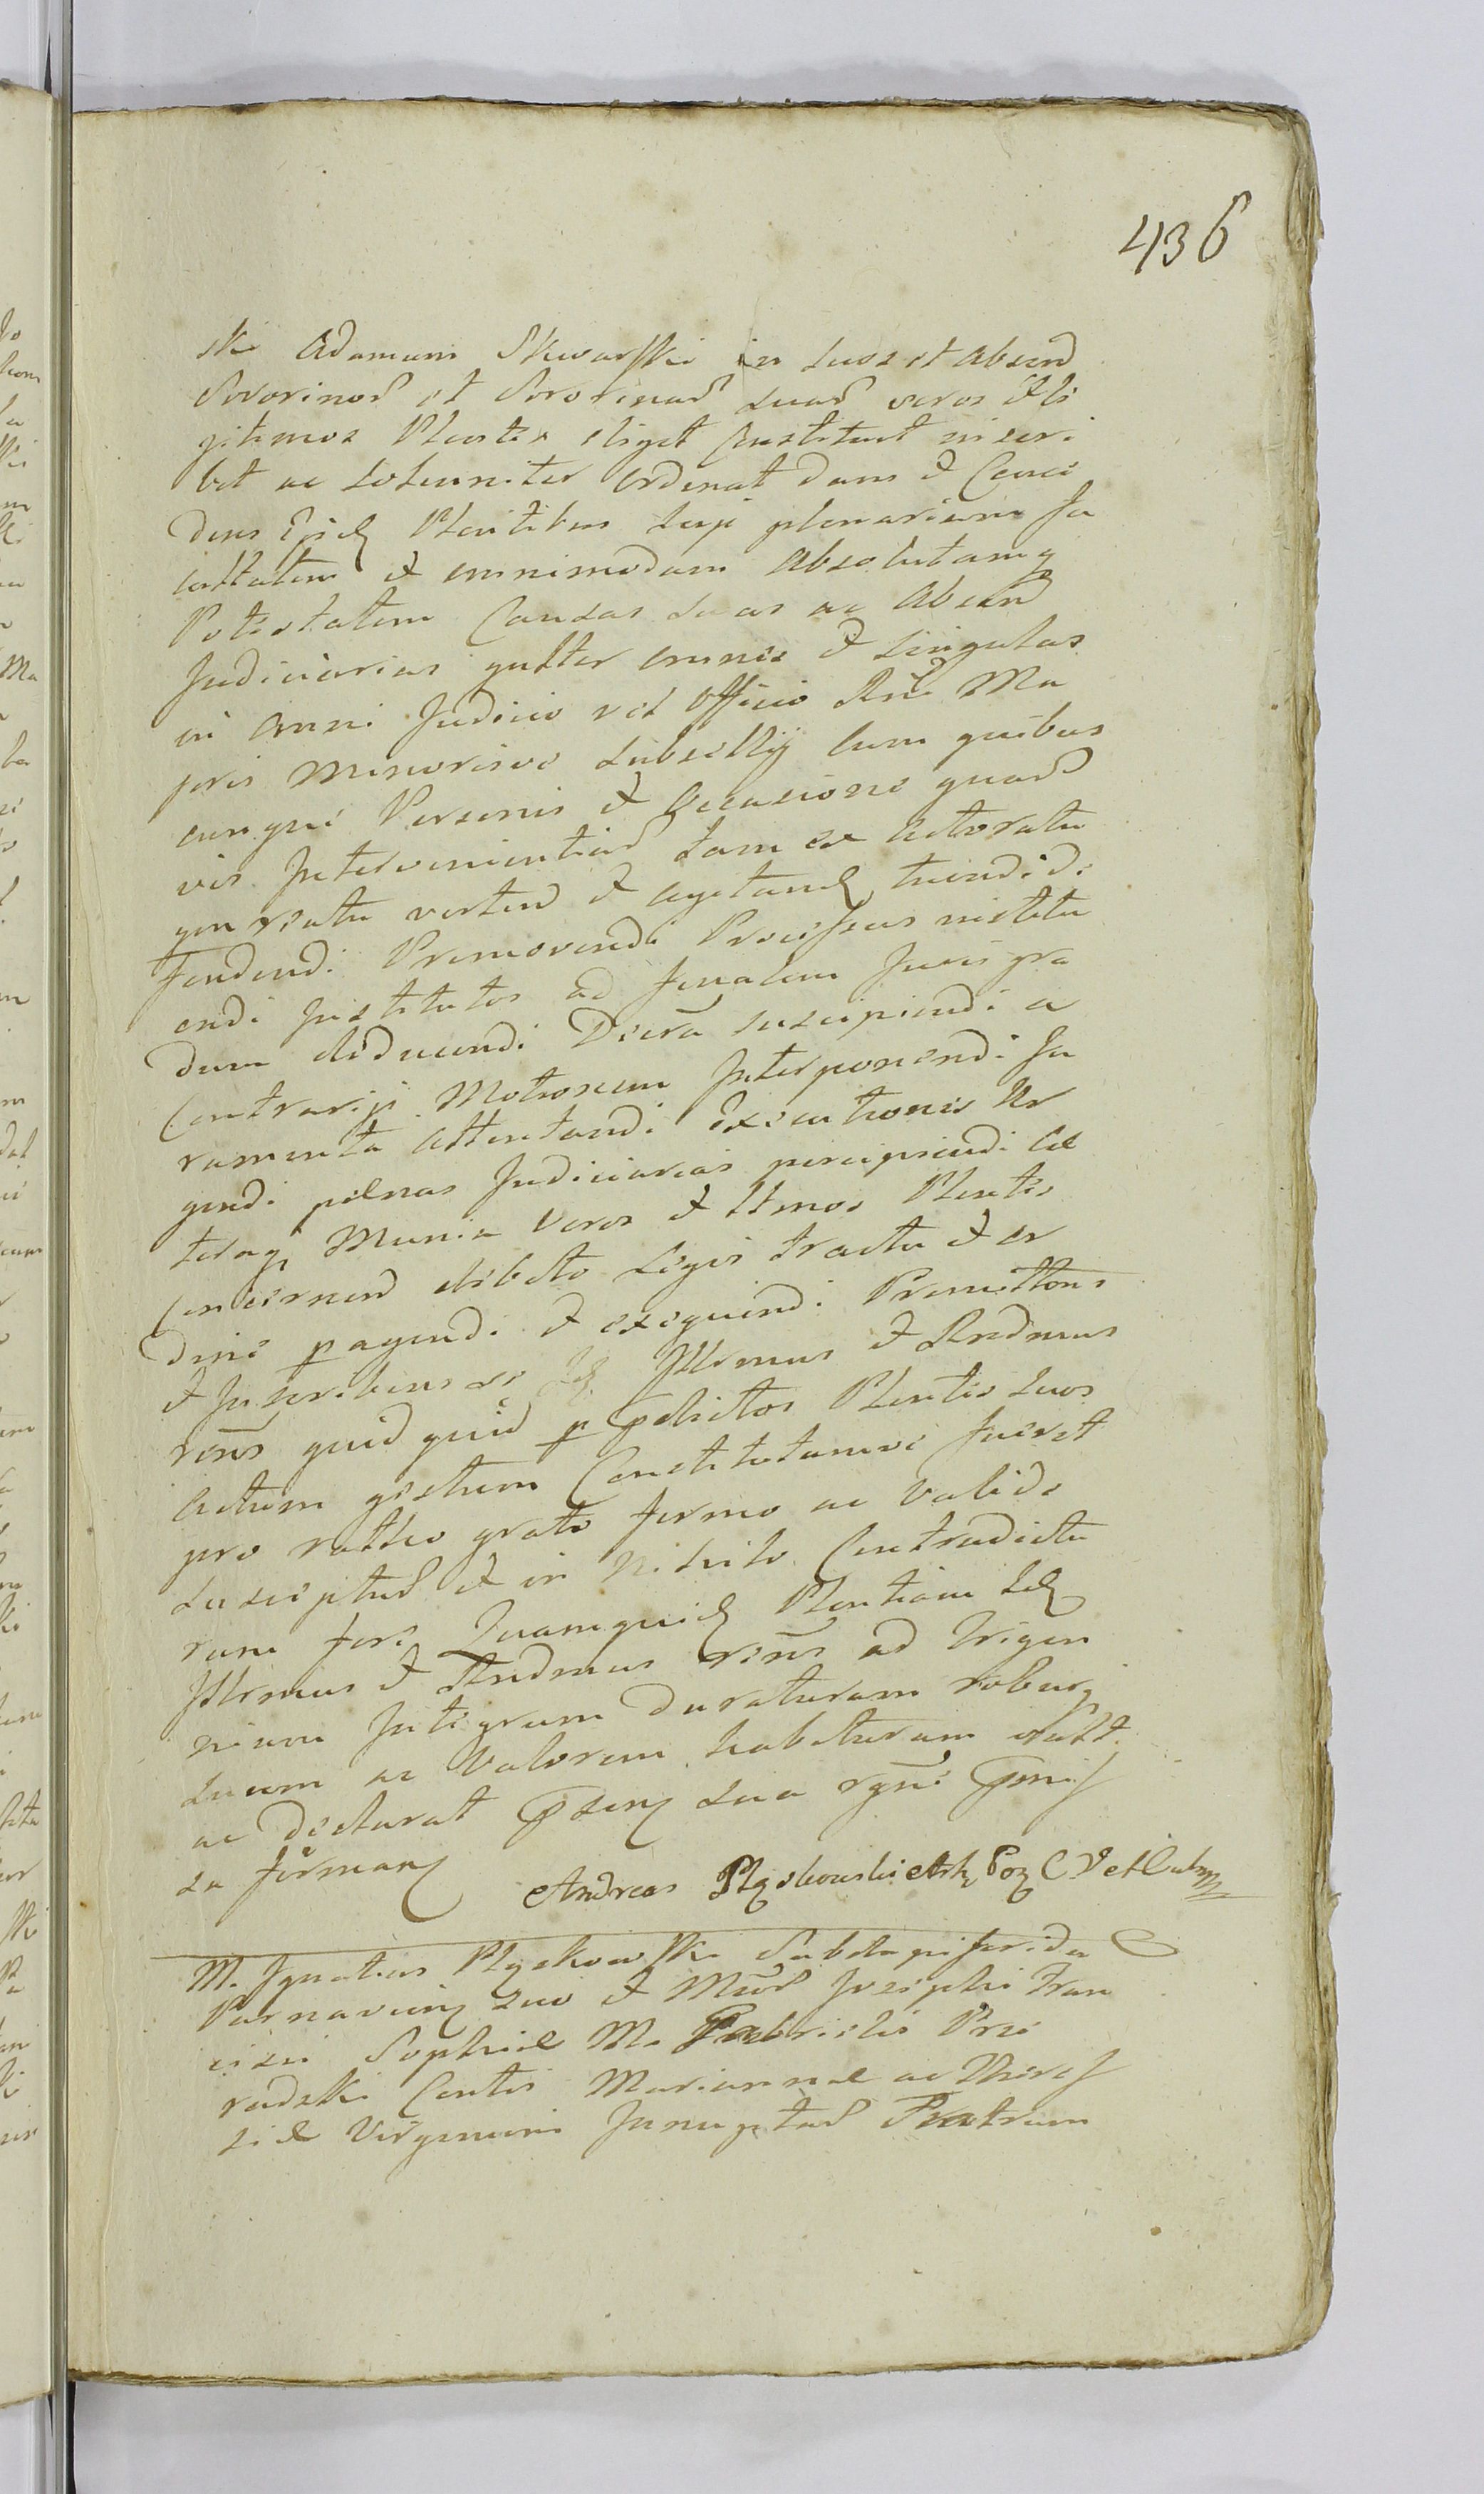 436
ski Adamum Skwarski in suos et absend
Sororinos et Sororinas suas veros et le
gitimos Plentes eligit Constituit inscri
bit ac solenniter ordinat dans et Conce
dens Eisd Plentibus suis plenariam fa
cultatem et omnimodam absolutamq
Potestatem Causas suas ac absend
Judiciarias gnlter omnes et singulas
in omni Judicio vel Officio Rni Ma
joris Minorisve Subsellij cum quibus
cunque Personis et occasione quad
vis Intervenientias tam ex actoratu
qm reatu verten et agitand tuendi de
fendendi Promovendi Processus institu
endi Institutos ad finalem Juris gra
dum deducendi Decra suscipiendi a
Contrariis Motionem Interponendi Ju
ramenta attentandi Executiones Ur
gendi poenas Judiciarias percipiendi Cae
teraq Munia veros et Ltmos Plentes
Concernen debito Legis tractu et or
dine pagendi et exequendi Promittens
et Inscribens se Illrmus et Rndmus
rens quid quid p pdictos Plentes suos
actum gestum Constitutumve fuerit
pro ratho grato firmo ac valido
suscepturd et in nihilo Contradictu
rum fore Quamquid Plentiam Id
Illrmus et Rndmus rens ad Trigen
nium Integrum duraturam roburq
suum ac valorem habituram vult
ac declarat Psenq sua rgni Pmis
sa firmanq
Andreas Pląskowski Arch Poz C
M. Ignatius Pląskowski Subdapiferida
Parnavienq suo et Mcor Josephi Fran
cisci Sophiae M. Gabrielis Prze
radzki Contis Mariannae ac There
siae Virginum Innuptar Fratrum